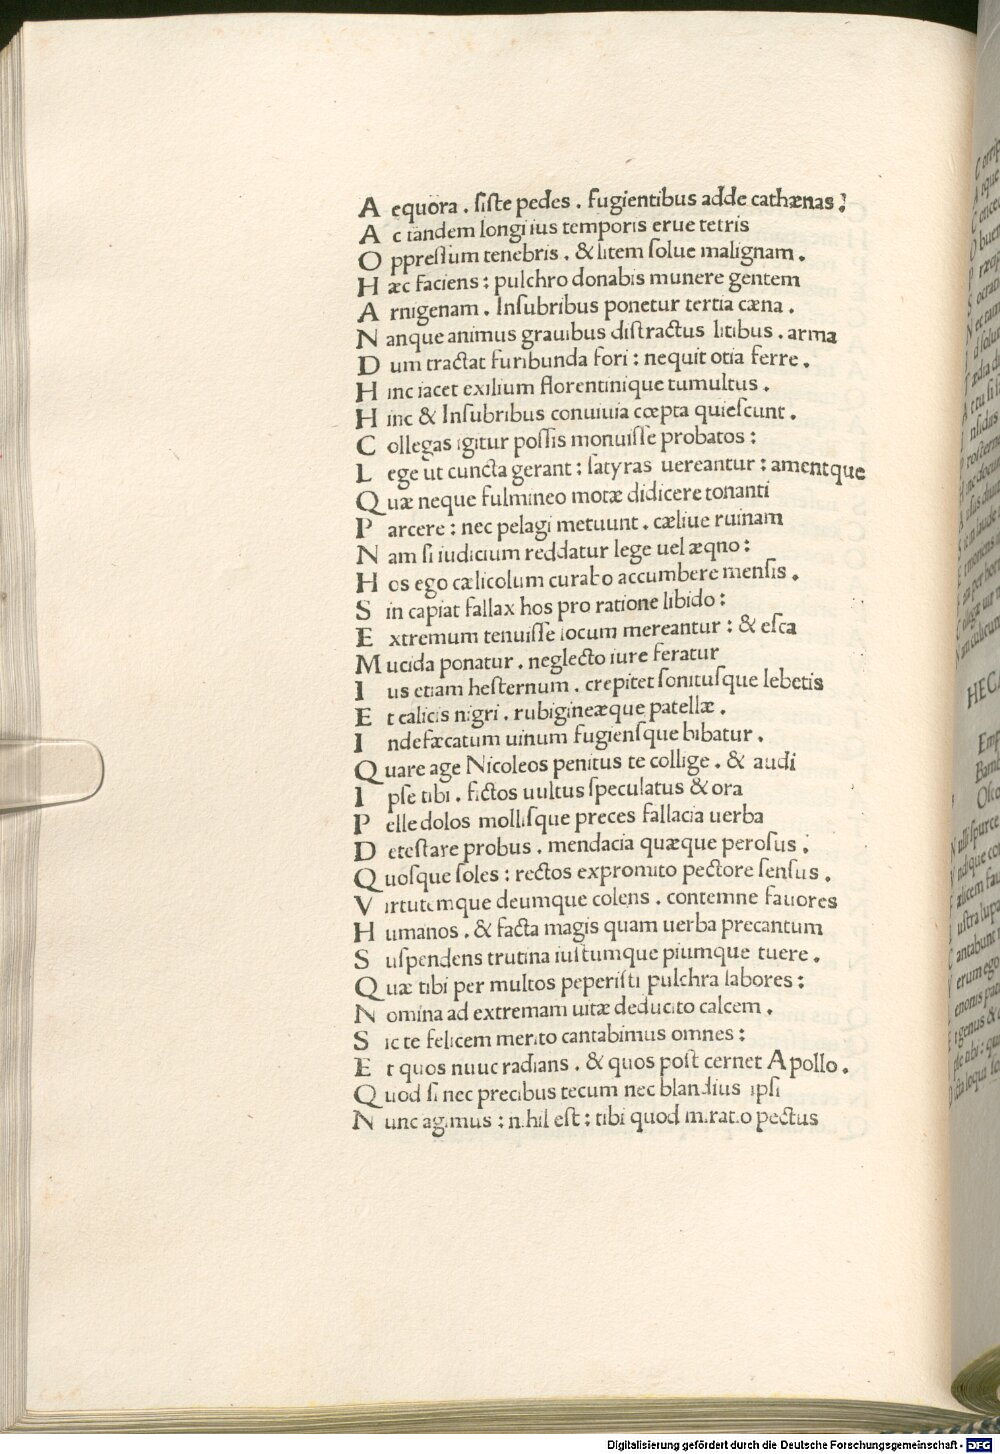 A equora . siste pedes . fugientibus adde cathænas ?
A c tandem longi ius temporis erue tetris
O ppressum tenebris . & litem solue malignam .
H æc faciens : pulchro donabis munere gentem
A rnigenam . Insubribus ponetur tertia cæna .
N anque animus grauibus distractus litibus . arma
D um tractat furibunda fori : nequit otia ferre .
H inc iacet exilium florentinique tumultus .
H inc & Insubribus conuiuia cœpta quiescunt .
C ollegas igitur possis monuisse probatos :
L ege ut cuncta gerant : satyras uereantur : amentque
Q uæ neque fulmineo motæ didicere tonanti
P arcere : nec pelagi metuunt . cæliue ruinam
N am si iudicium reddatur lege uel æqno :
H os ego cælicolum curabo accumbere mensis .
S in capiat fallax hos pro ratione libido :
E xtremum tenuisse iocum mereantur : & esca
M ucida ponatur . neglecto iure feratur
I us etiam hesternum . crepitet sonitusque lebetis
E t calicis nigri . rubigineæque patellæ .
I ndefæcatum uinum fugiensque bibatur .
Q uare age Nicoleos penitus te collige . & audi
I pse tibi . fictos uultus speculatus & ora
P elle dolos mollisque preces fallacia uerba
D etestare probus . mendacia quæque perosus .
Q uosque soles : rectos expromito pectore sensus .
V irtutemque deumque colens . contemne fauores
H umanos . & facta magis quam uerba precantum
S uspendens trutina iustumque piumque tuere .
Q uæ tibi per multos peperisti pulchra labores :
N omina ad extremam uitæ deducito calcem .
S ic te felicem merito cantabimus omnes :
E t quos nuuc radians . & quos post cernet Apollo .
Q uod si nec precibus tecum nec blandius ipsi
N unc agimus : nihil est : tibi quod miratio pectus
HECA
Digitalisierung gefördert durch die Deutsche Forschungsgemeinschaft - DFG